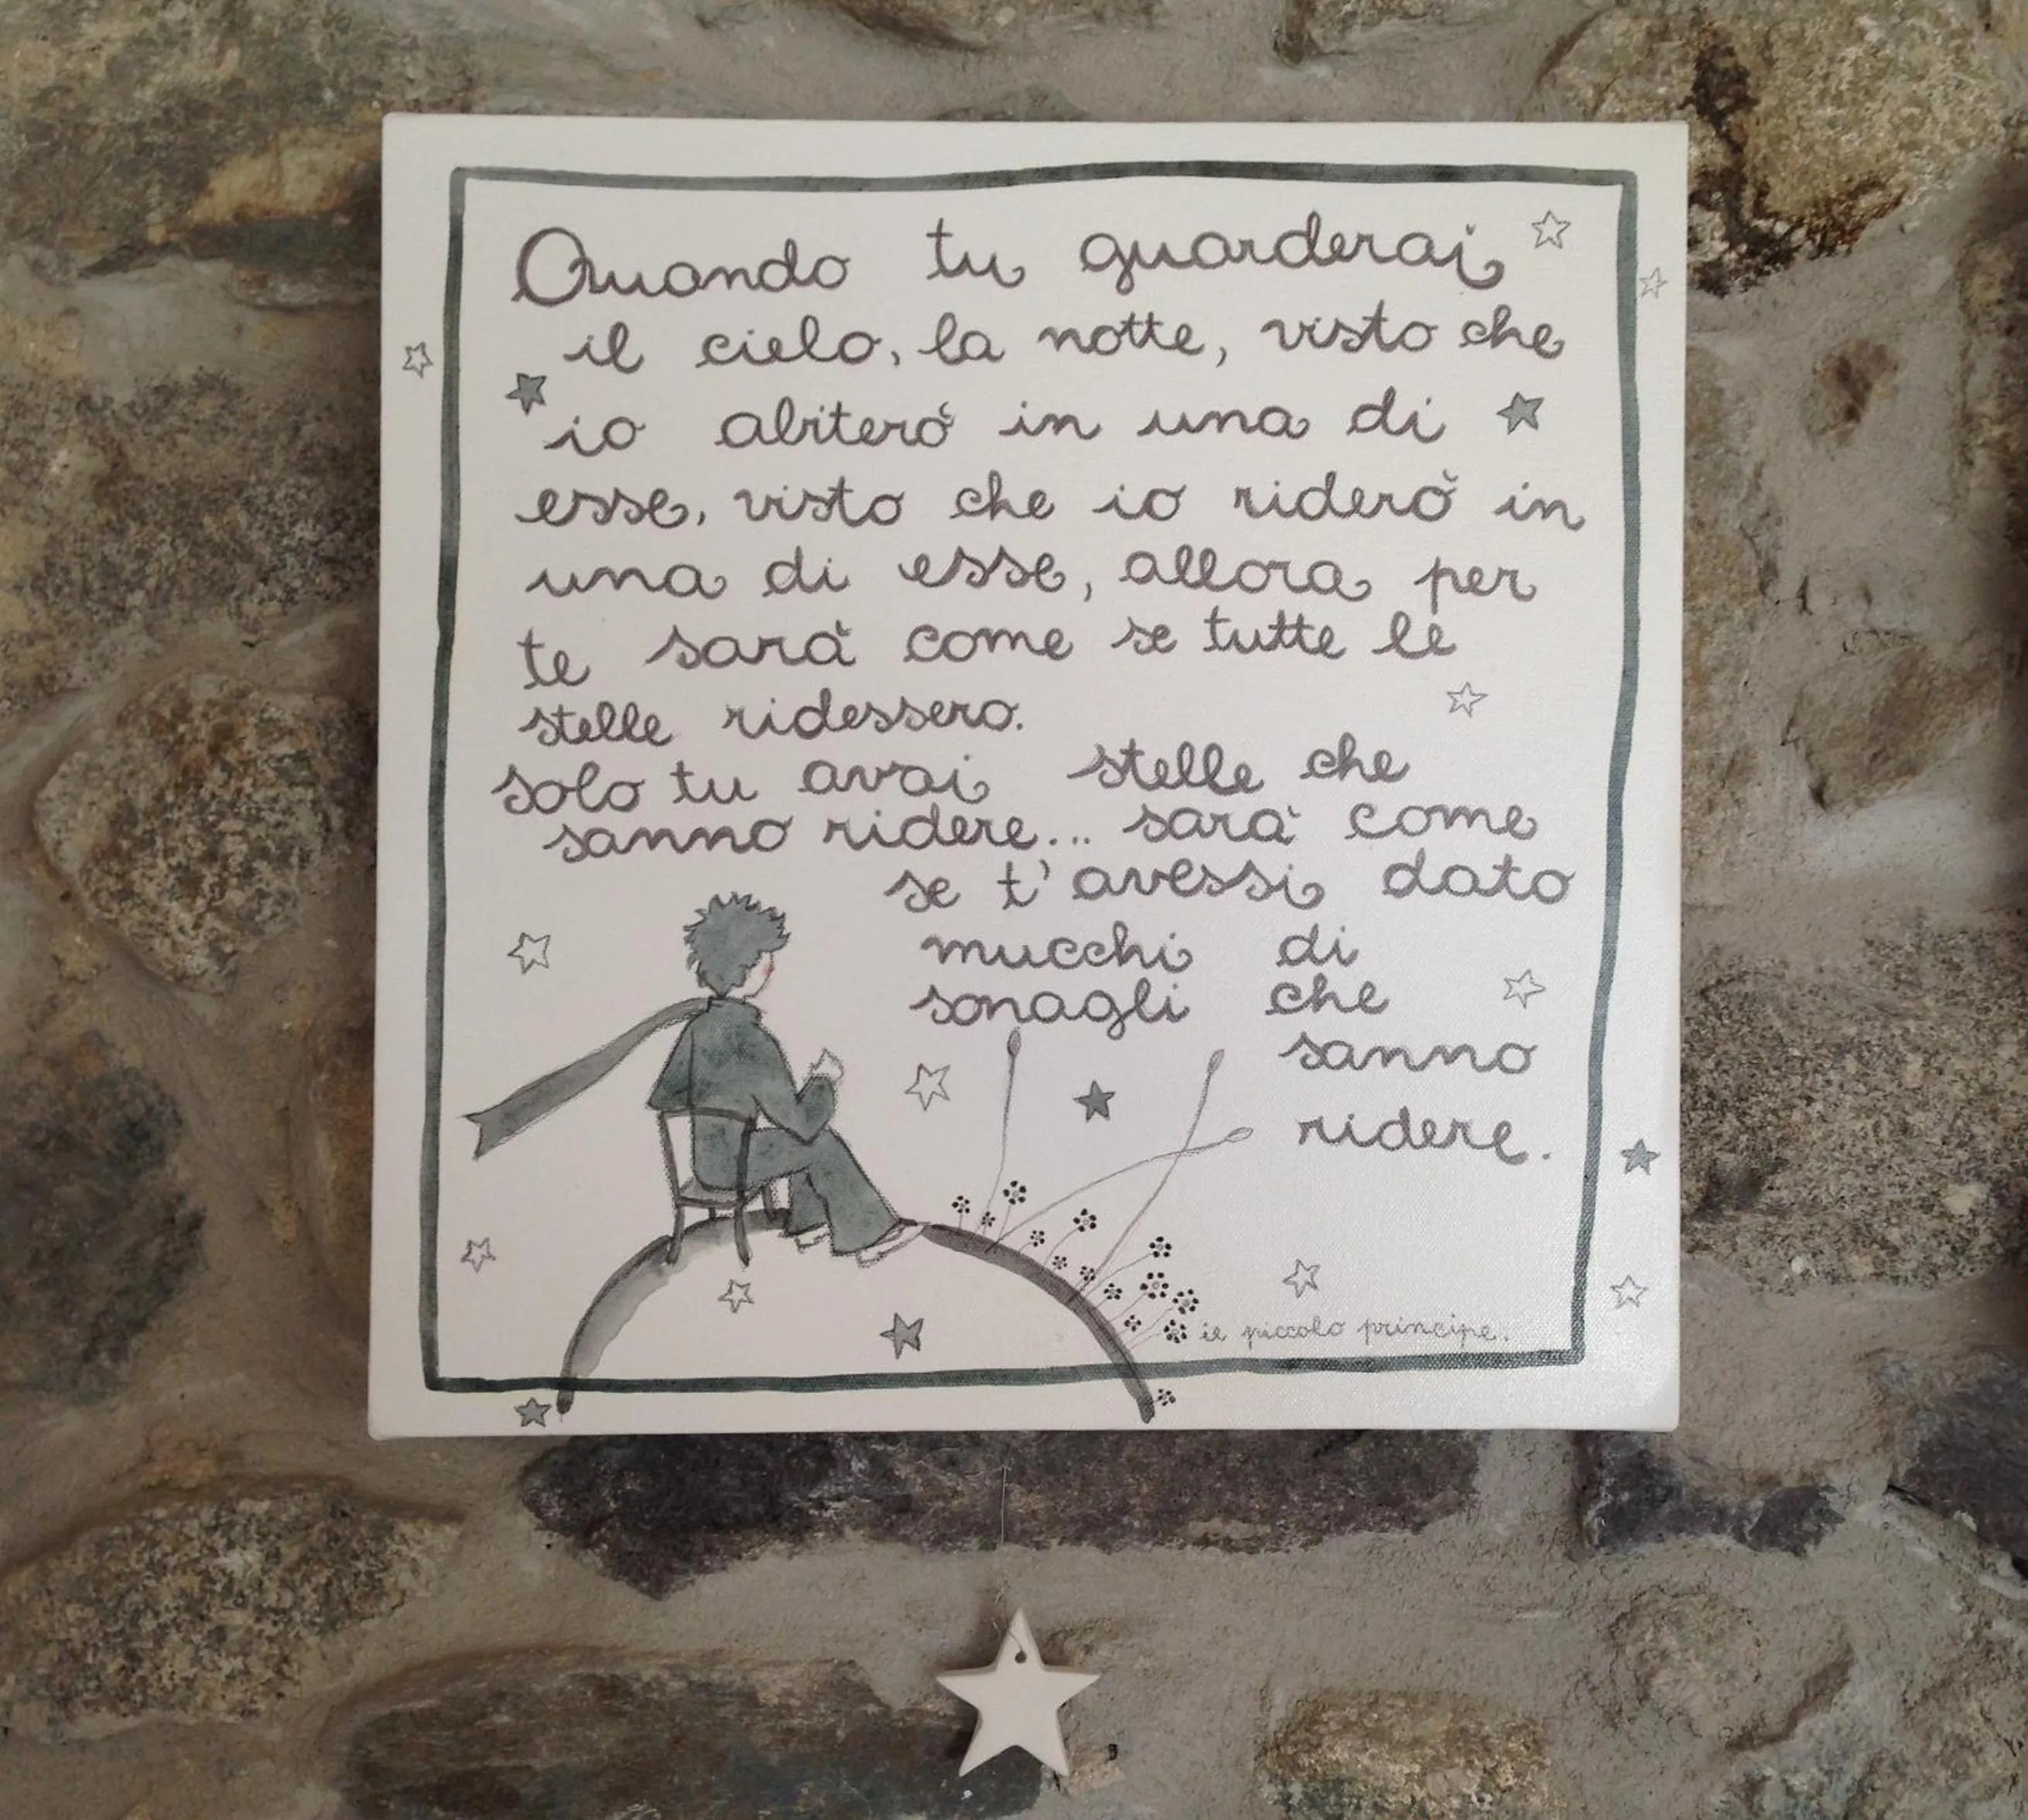 Quando tu guarderai
il cielo, la notte, visto che
io abiterò in una di
esse, visto che io riderò in
una di esse, allora per
te sarà come se tutte le
stelle ridessero.
solo tu avai stelle che
sanno ridere... sarà come
se t'avessi dato
mucchi di
sonagli che
sanno
ridere.
il piccolo principe.